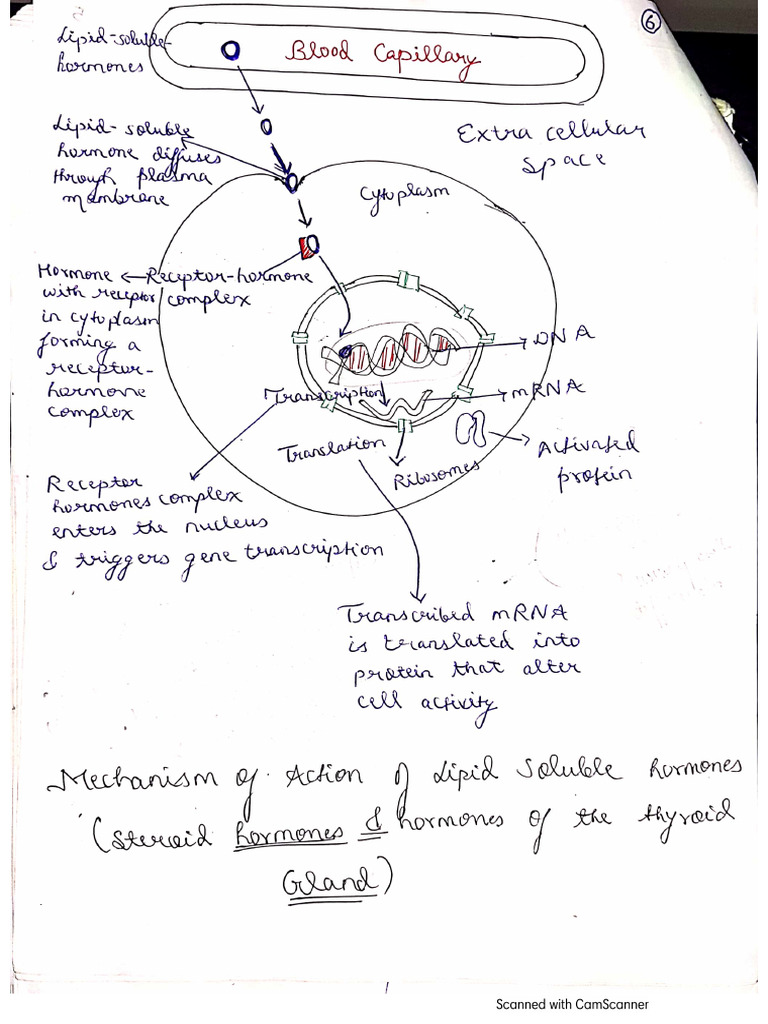 6
Lipid-soluble-
hormones
Blood Capillary
Lipid-soluble
hormone diffuses
through plasma
membrane
Extra cellular
space
Cytoplasm
Hormone
with receptor
in cytoplasm
forming a
receptor-
hormone
complex
Receptor-hormone
complex
DNA
Transcription
mRNA
Translation
Ribosomes
Activated
protein
Receptor
hormones complex
enters the nucleus
& triggers gene transcription
Transcribed mRNA
is translated into
protein that alter
cell activity
Mechanism of Action of Lipid Soluble hormones
(steroid hormones & hormones of the thyroid
Gland)
Scanned with CamScanner